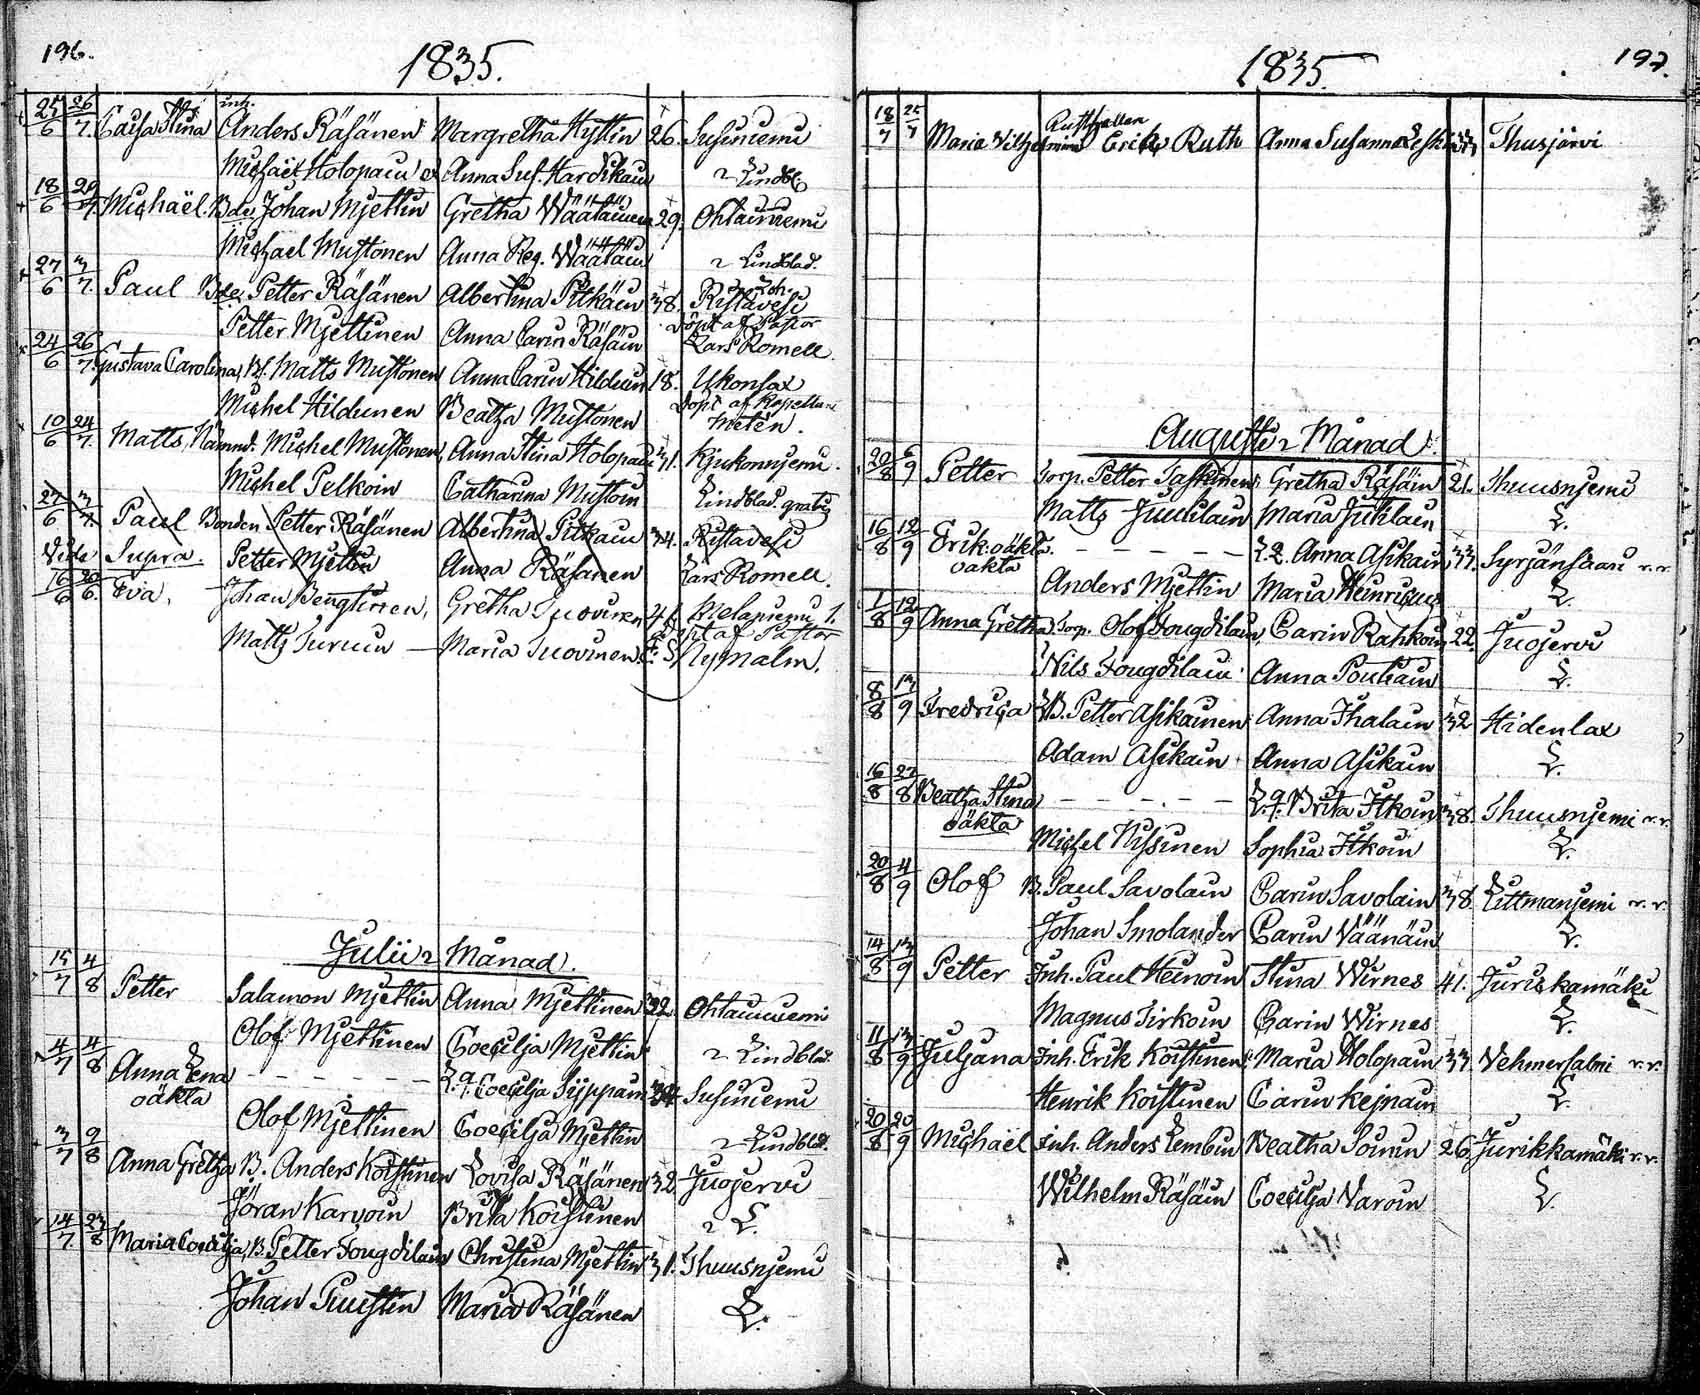 196.
1835.
25/6 26/7 Caisa Stina inh. Anders Räsänen Margretha Hyttin 26. Susiniemi
Michaël Holopain Anna Sus. Hardikain Lindbl.
18/6 Michaël. Bde. Johan Mjettin Gretha Wäätäinen 29. Ohtaniemi
Michael Mustonen Anna Reg. Wäätäin Lindblad.
27/6 3/7 Paul Bde. Petter Räsänen Albertina Pitkäin 38. Ristavesi
Petter Mjettinen Anna Carin Räsäin Döpt af Pastor Lars Romell
24/6 26/7 Gustava Carolina, B. Matts Mustonen Anna Carin Hilduin 18. Ukonlax
Michel Hildunen Beatha Mustonen Döpt af Kapellan Metén.
10/6 24/7 Matts, Nämnd. Michel Mustonen, Anna Stina Holopain 31. Kjukonnjemi.
Michel Pelkoin Catharina Mustoin Lindblad. gratis
27/6 3/7 Paul Bonden Petter Räsänen Albertina Pitkain 34. Ristavesi
Vide Supra. Petter Mjettin Anna Räsanen Lars Romell.
16/6 20/6 Eva, Johan Bengtinen, Gretha Suovinen 41
Matts Turuin — Maria Suovinen döpt af Pastor Nymalm.
Julii Månad.
15/7 4/8 Petter Salamon Mjettin Anna Mjettinen 22 Ohtaniemi
Olof Mjettinen Coecilja Mjettin Lindblad
4/7 4/8 Anna Lena oäkta – – – – – – L. q. Coecilja Syppain 34 Susiniemi
Olof Mjettinen Coecilja Mjettin Lindblad.
3/7 9/8 Anna Gretha B. Anders Koistinen Lovisa Räsänen 32 Juojervi
Jöran Karvoin Brita Koistinen L.
14/7 23/8 Maria Coecilja, B. Petter Fougdilain Christina Mjettin 31. Thuusnjemi
Johan Puustin Maria Räsänen L.
1835
197.
18/7 25/7 Maria Vilhelmina Erik Ruth Anna Susanna Thusjärvi
Augusti Månad.
20/8 6/9 Petter Torp. Petter Taskinen Gretha Räsäin 21. Thuusnjemi
Matts Juutilain Maria Jutilain L.
16/8 12/9 Erik oäkta oäkta – – – – – L. q. Anna Asikain 33. Syrjänsaari r.r.
Anders Mjettin Maria L.
1/8 12/9 Anna Gretha Torp. Olof Fougdilain, Carin Rahkoin 22. Juojervi
Nils Fougdilain Anna Poutiain L.
8/8 13/9 Fredrica B. Petter Asikainen Anna Ihalain 32 Hidenlax
Adam Asikain Anna Asikain L.
16/8 23/8 Beatha Stina oäkta – – – – – L. q. Brita Itkoin 38. Thuusnjemi r.r.
Michel Nissinen Sophia Itkoin L.
20/8 4/9 Olof B. Paul Savolain Carin Savolain 38. Littmanjemi r.r.
Johan Smolander Carin Väänäin L.
14/8 13/9 Petter Inh. Paul Heinoin Stina Wirnes 41. Juriskamäki
Magnus Tirkoin Carin Wirnes L.
11/8 13/9 Juljana Inh. Erik Koistinen Maria Holopain 33. Vehmersalmi r.r.
Henrik Koistinen Carin Kejnain L.
20/8 20/9 Michaël Inh. Anders Lembin Beatha Soinin 26. Jurikkamäki r.r.
Wilhelm Räsäin Coecilja Varoin L.